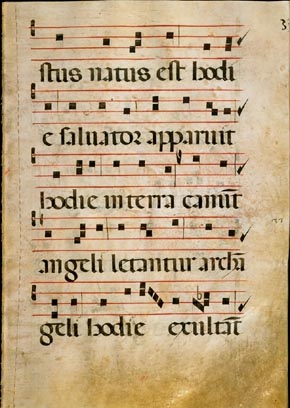 stus natus est hodi
e saluator apparuit
hodie in terra canūt
angeli letantur archā
geli hodie exultāt